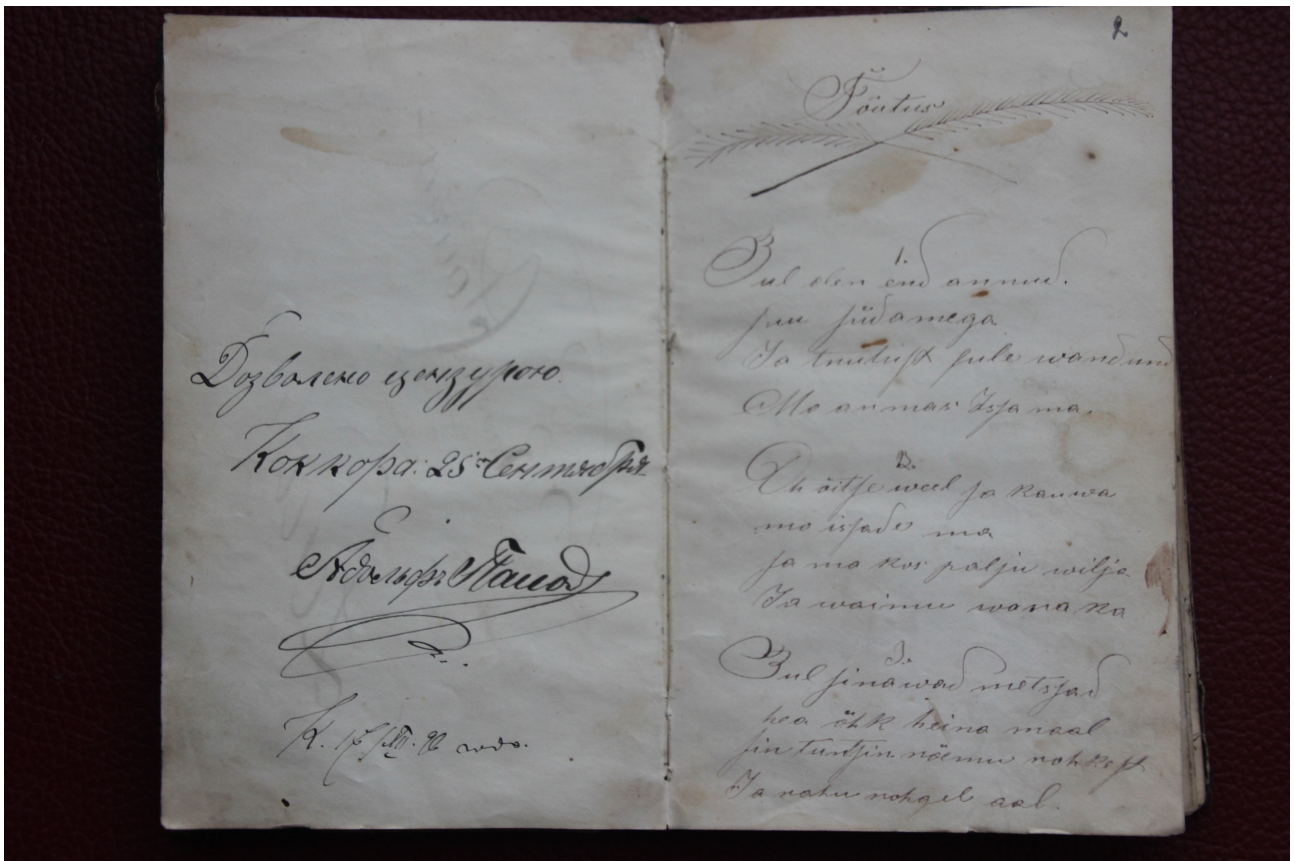 Дозволено цензурою.
Коккора: 25го Сентября
Адольфъ
К. 17/XII. 96 года.
2
Tõotus
1.
Sul olen end annud.
suu südamega
Ja truudust sule wandund
Mo armas Issa ma.
2.
Oh õitse weel ja kauwa
mo issade ma
sa ma kos palju wilja
Ja waimu wara ka
3.
Sul sinawad metssad
hea õhk heina maal
sin tuntsin rõõmu rohkest
Ja rahu rohgel aal.